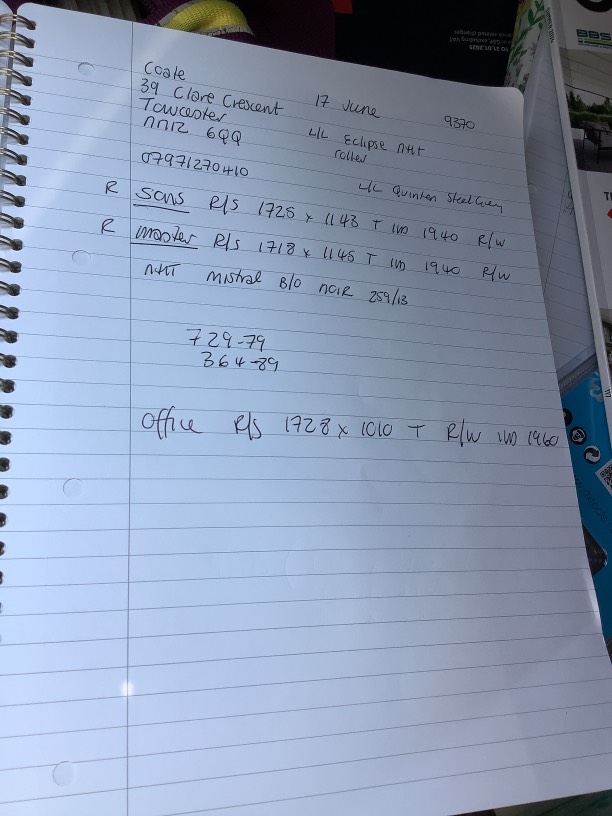 Coate
39 Clare Crescent
Towcester
NN12 6QQ
17 June
9370
L/L Eclipse NHT
roller
07971270410
L/L Quinten Steel Grey
R Sons R/S 1725 x 1143 T IW 1940 R/W
R Master R/S 1718 x 1145 T IW 1940 R/W
NHT Mistral B/O NOIR 259/13
729-79
364-89
Office R/S 1728 x 1010 T R/W IW 1960
BBS